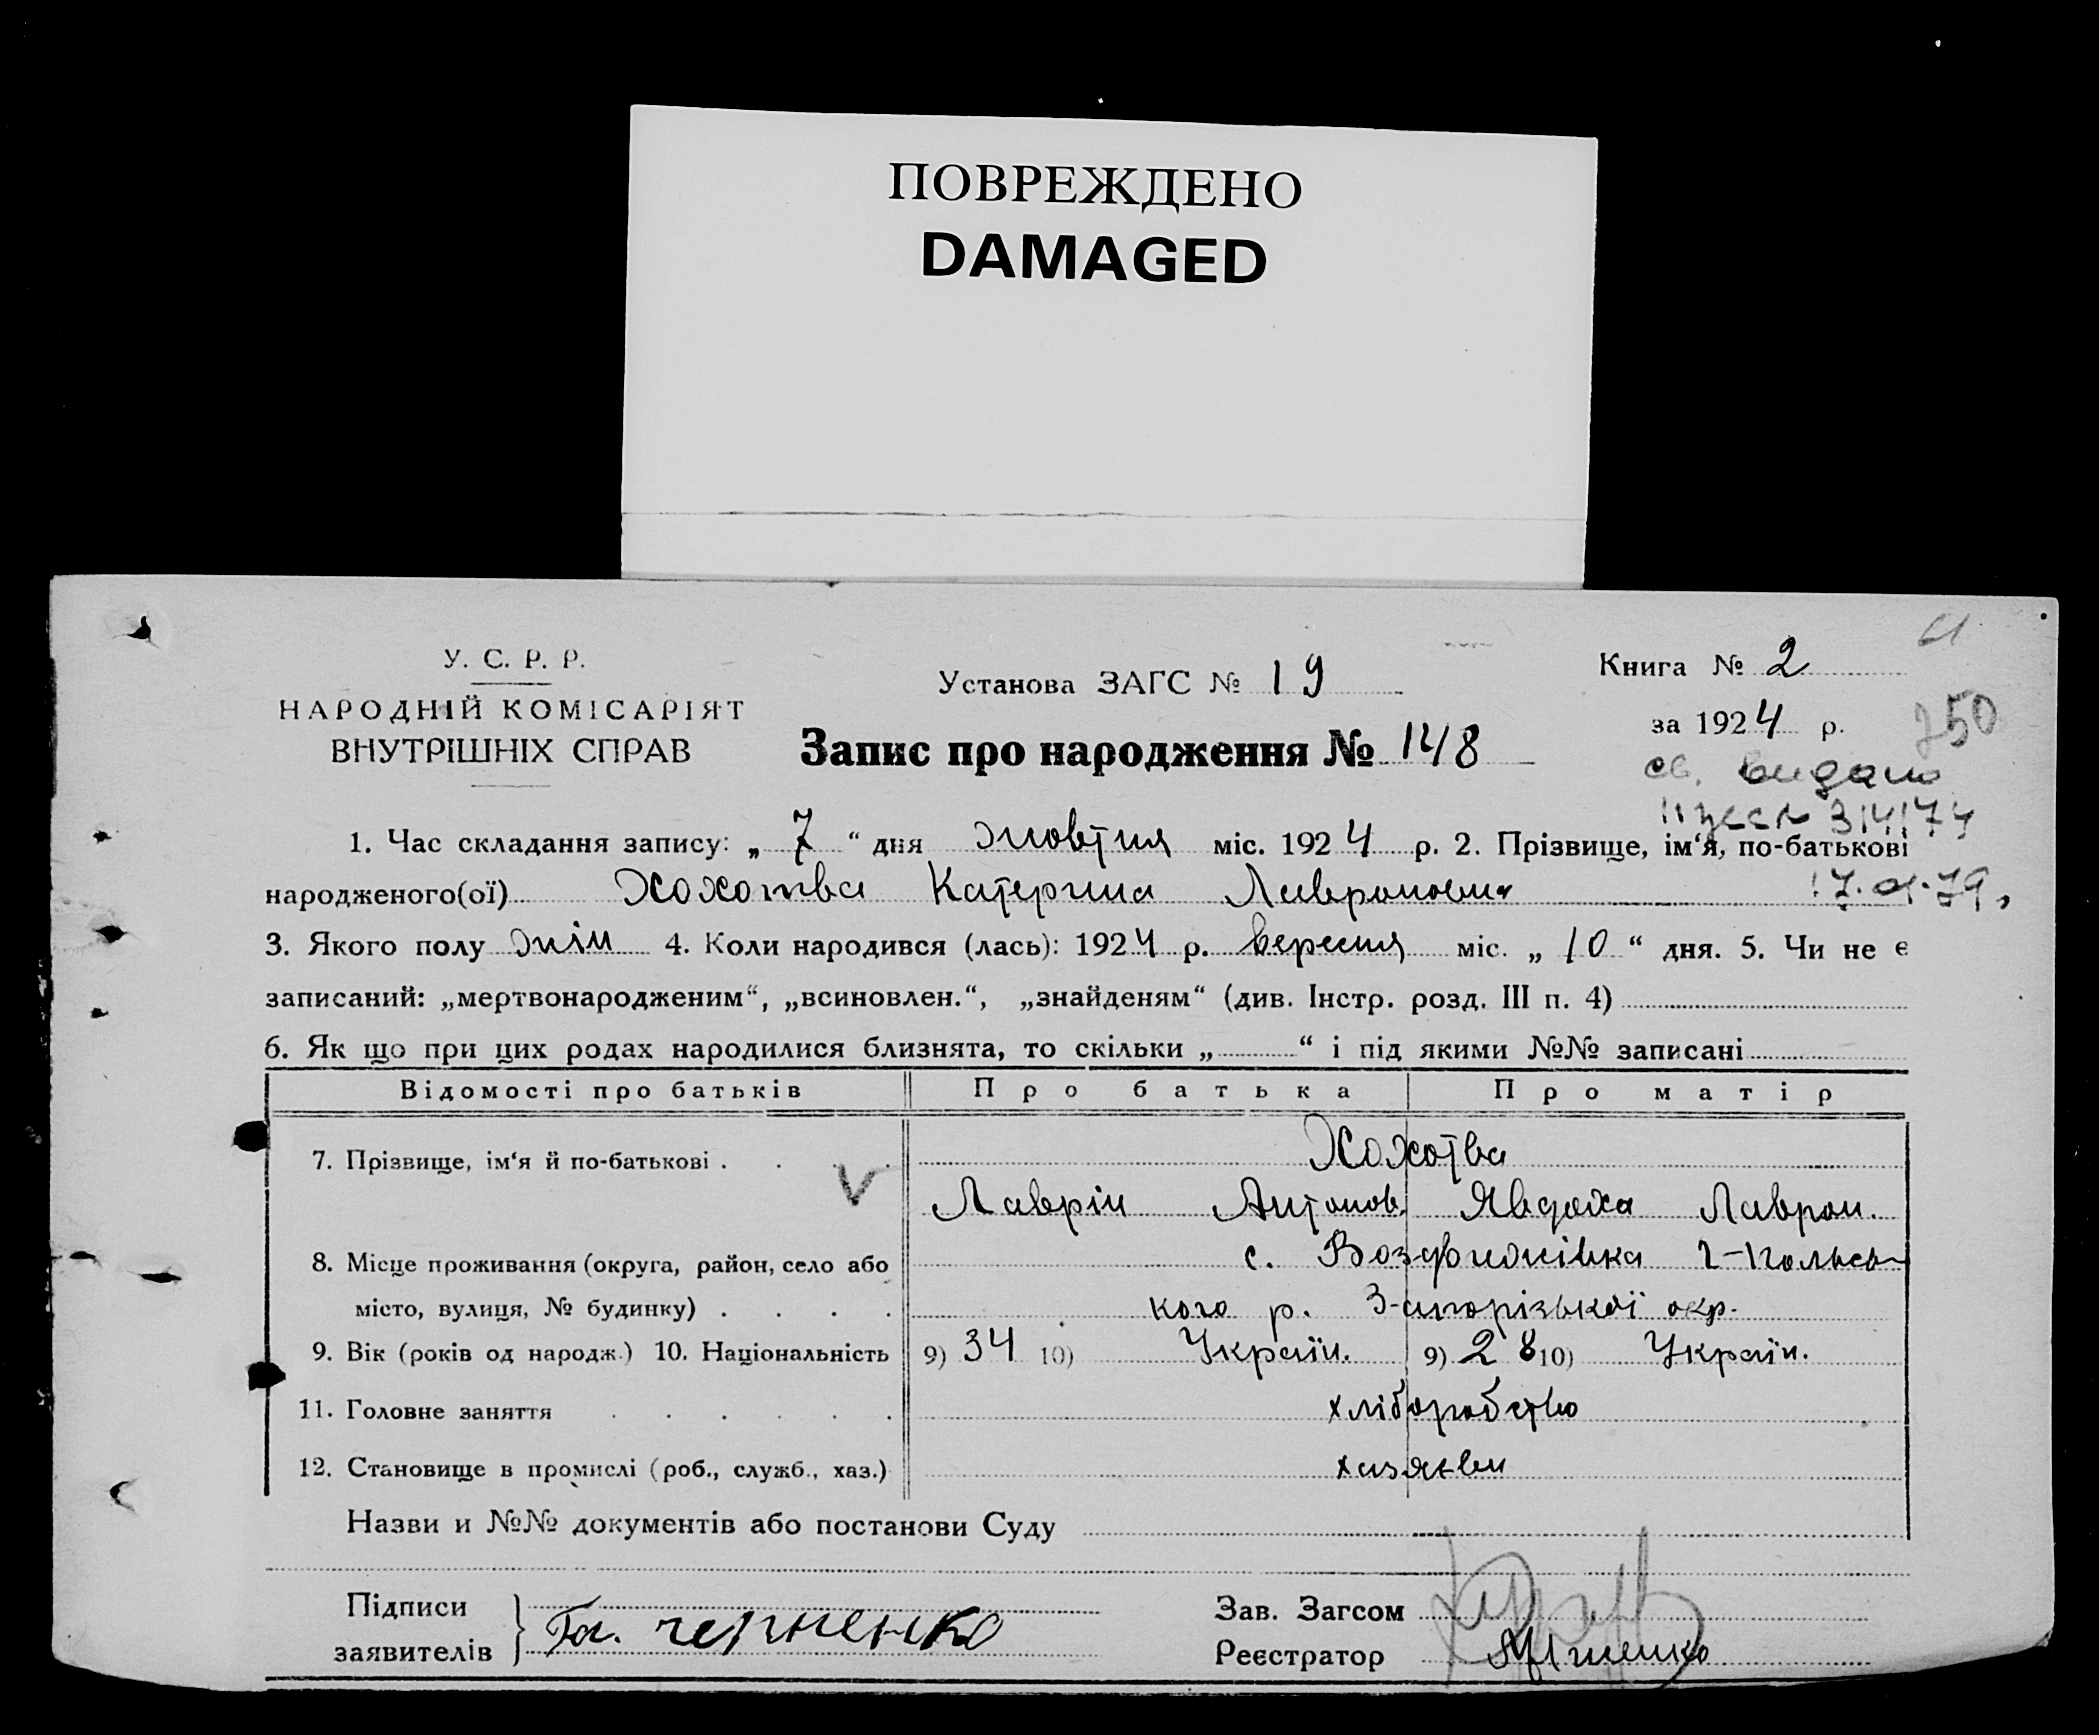 ПОВРЕЖДЕНО
DAMAGED
У. С. Р. Р.
НАРОДНІЙ КОМІСАРІЯТ
ВНУТРІШНІХ СПРАВ
Установа ЗАГС № 19
Запис про народження № 148
Книга № 2
за 1924 р.
250
св. видано
314174
1. Час складання запису: „ 7 “ дня жовтня міс. 1924 р. 2. Прізвище, ім‘я, по-батькові
народженого(ої) Хохотва Катерина Лавроновна
3. Якого полу жін 4. Коли народився (лась): 1924 р. вересня міс. „ 10 “ дня. 5. Чи не є
записаний: „мертвонародженим“, „всиновлен.“, „знайденям“ (див. Інстр. розд. III п. 4)
6. Як що при цих родах народилися близнята, то скільки „ “ і під якими №№ записані
Відомості про батьків Про батька Про матір
7. Прізвище, ім‘я й по-батькові . . . . Хохотва
Лаврін Антонов. Явдоха Лаврон.
8. Місце проживання (округа, район, село або с. Воздвижівка Г-Польсь-
місто, вулиця, № будинку) . . . . кого р. З-апорізької окр.
9. Вік (років од народж.) 10. Національність 9) 34 10) Україн. 9) 28 10) Україн.
11. Головне заняття . . . . . . хліборобство
12. Становище в промислі (роб., служб., хаз.) хазяєви
Назви и №№ документів або постанови Суду
Підписи
заявителів } Га. Черненко
Зав. Загсом
Реєстратор